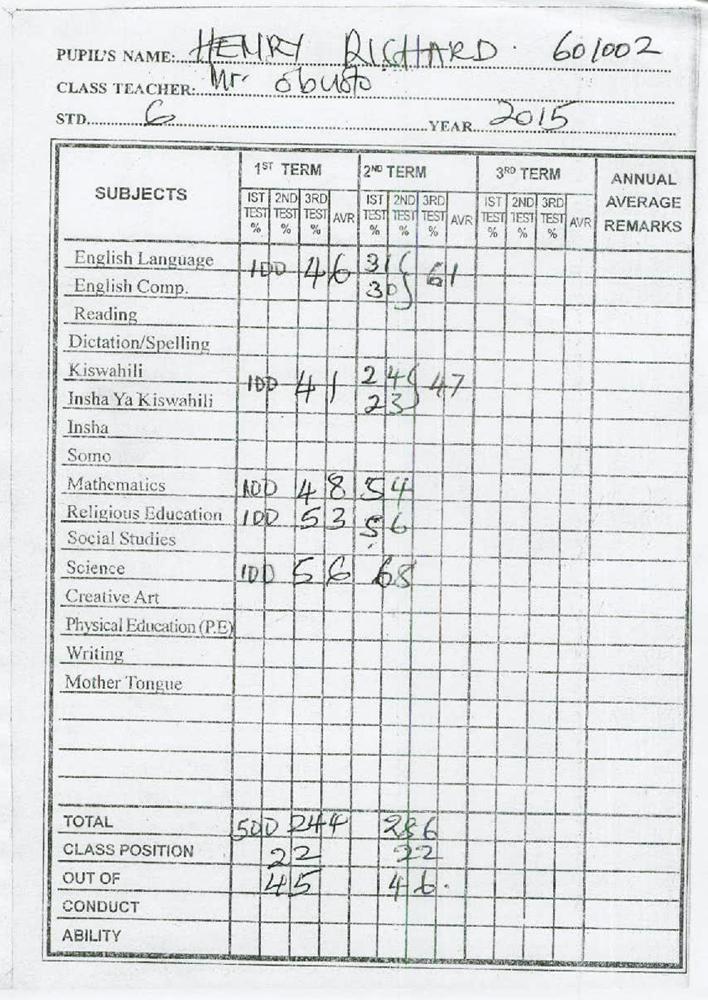 PUPIL'S NAME: HENRY RICHARD. 601002
CLASS TEACHER: Mr. Obuoto
STD. 6 YEAR 2015
SUBJECTS 1ST TERM 2ND TERM 3RD TERM ANNUAL AVERAGE REMARKS
IST TEST % 2ND TEST % 3RD TEST % AVR IST TEST % 2ND TEST % 3RD TEST % AVR IST TEST % 2ND TEST % 3RD TEST % AVR
English Language 100 46 31 61
English Comp. 30
Reading
Dictation/Spelling
Kiswahili 100 41 24 47
Insha Ya Kiswahili 23
Insha
Somo
Mathematics 100 48 54
Religious Education 100 53 56
Social Studies
Science 100 56 68
Creative Art
Physical Education (P.E)
Writing
Mother Tongue
TOTAL 500 244 286
CLASS POSITION 22 22
OUT OF 45 46.
CONDUCT
ABILITY